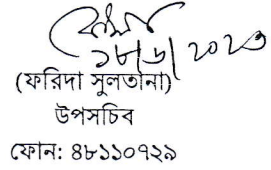 ১৮/৬/২০২৩
(ফরিদা সুলতানা)
উপসচিব
ফোন: ৪৮১১০৭২৯